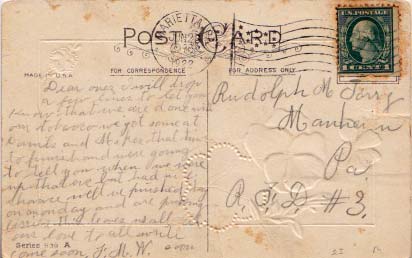 POST CARD
MARIETTA
1922
U.S. POSTAGE
1 CENT 1
MADE IN U.S.A.
FOR CORRESPONDENCE
FOR ADDRESS ONLY
Dear ones I will drop
a few lines to let you
know that we are done with
our tobacco we got some at
and that
to finish and were going
to tell you when we were
up that we
we finished
on monday and are
this leaves us all
our love to all write
come soon. F. M. W.
Series 539 A
Rudolph M
Manheim
Pa
R. F. D. #3.